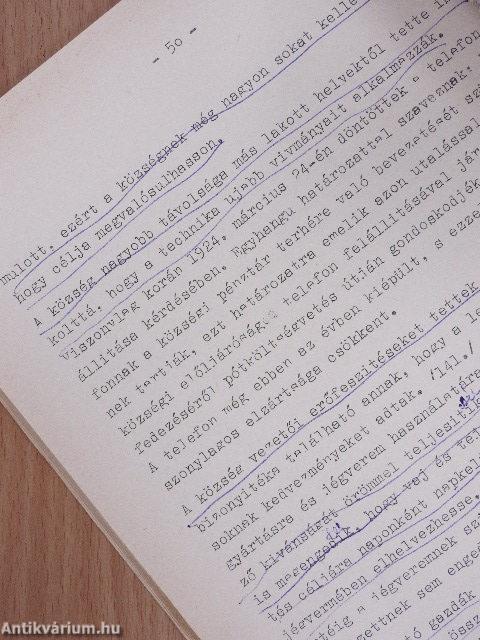 - 50 -
mulott, ezért a községnek még nagyon sokat kelle
hogy célja megvalósulhasson.
A község nagyobb távolsága más lakott helyektől tette
kolttá, hogy a technika ujabb vivmányait alkalmazzák.
Viszonylag korán 1924. március 24-én döntöttek a telefon
állitása kérdésében. Egyhangu határozattal szavaznak,
fonnak a községi pénztár terhére való bevezetését
nek tartják, ezt határozatra emelik azon utalással
községi előljáróság a telefon felállitásával jár
fedezéséről pótköltségvetés utján gondoskodjék
A telefon még ebben az évben kiépült, s ezze
szonylagos elzártsága csökkent.
A község vezetői erőfeszitéseket tettek
bizonyitéka található annak, hogy a le
soknak kedvezményeket adtak. /141./
gyártásra és jégverem használatára
ző kivánságát örömmel teljesitik
is megengedik, hogy vaj és te
tés céljára naponként napkel
jégvermében elhelyezhesse.
téig a jégveremnek
zettnek sem enge
gazdák
Antikvárium.hu